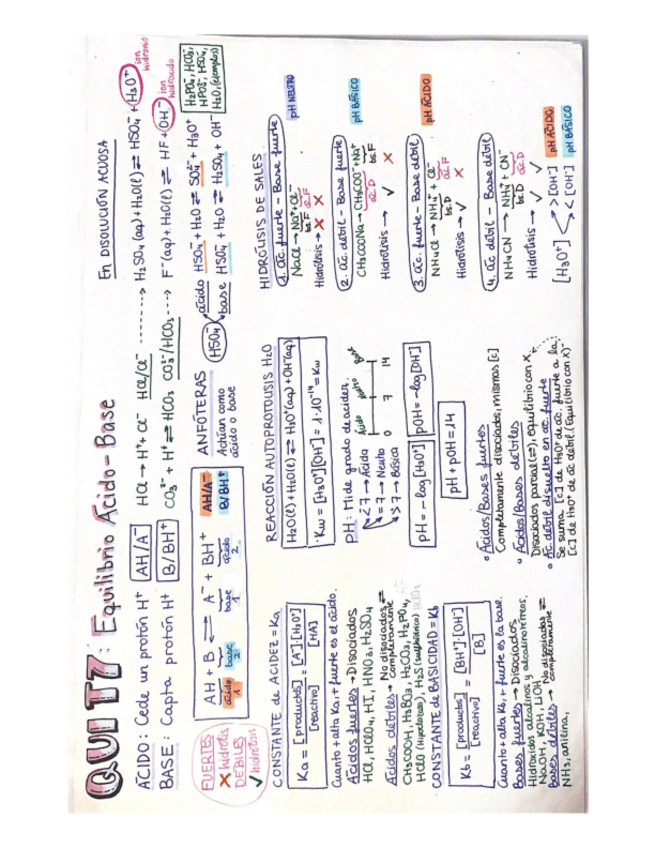 QUI T7: Equilibrio Ácido-Base
ÁCIDO: Cede un protón H⁺ AH/A⁻ HCl → H⁺ + Cl⁻ HCl/Cl⁻
BASE: Capta protón H⁺ B/BH⁺ CO₃²⁻ + H⁺ ⇌ HCO₃ CO₃²⁻/HCO₃
En DISOLUCIÓN ACUOSA
H₂SO₄(aq) + H₂O(l) ⇌ HSO₄⁻ + H₃O⁺ ion hidronio
F⁻(aq) + H₂O(l) ⇌ HF + OH⁻ ion hidróxido
FUERTES
✗ hidrólisis
DÉBILES
✓ hidrólisis
AH + B ⇌ A⁻ + BH⁺
ácido 1 base 2 base 1 ácido 2
AH/A⁻
B/BH⁺
ANFÓTERAS
Actúan como
ácido o base
HSO₄⁻
ácido HSO₄⁻ + H₂O ⇌ SO₄²⁻ + H₃O⁺
base HSO₄⁻ + H₂O ⇌ H₂SO₄ + OH⁻
H₂PO₄⁻, HCO₃⁻,
HPO₄²⁻, HSO₄⁻,
H₂O, (ejemplos)
CONSTANTE de ACIDEZ = Ka
Ka = [productos]/[reactivo] = [A⁻]·[H₃O⁺]/[HA]
Cuanto + alta Ka, + fuerte es el ácido.
Ácidos fuertes → Disociados
HCl, HClO₄, HI, HNO₃, H₂SO₄
Ácidos débiles → No disociados ⇌
completamente
CH₃COOH, H₃BO₃, H₂CO₃, H₂PO₄,
HClO (hipocloroso), H₂S (sulfhídrico)
CONSTANTE de BASICIDAD = Kb
Kb = [productos]/[reactivo] = [BH⁺]·[OH⁻]/[B]
Cuanto + alta Kb, + fuerte es la base.
Bases fuertes → Disociados
Hidróxidos alcalinos y alcalinotérreos.
NaOH, KOH, LiOH
Bases débiles → No disociadas ⇌
completamente
NH₃, anilina,
REACCIÓN AUTOPROTOLISIS H₂O
H₂O(l) + H₂O(l) ⇌ H₃O⁺(aq) + OH⁻(aq)
·Kw = [H₃O⁺][OH⁻] = 1·10⁻¹⁴ = Kw
pH: Mide grado de acidez.
< 7 → Ácida
= 7 → Neutro
> 7 → Básica
Ácido Neutro Base
0 7 14
pH = -log[H₃O⁺] pOH = -log[OH⁻]
pH + pOH = 14
• Ácidos/Bases fuertes
Completamente disociados, mismas [c]
• Ácidos/Bases débiles
Disociados parcial (⇌), equilibrio con x
• Ác débil disuelto en ác fuerte
Se suma [c] de H₃O⁺ de ác. fuerte a la
[c] de H₃O⁺ de ác débil. (Equilibrio con x)
HIDRÓLISIS DE SALES
1. Ác. fuerte - Base fuerte pH NEUTRO
NaCl → Na⁺ + Cl⁻
bs.F ác.F
Hidrólisis → ✗ ✗
2. Ác. débil - Base fuerte pH BÁSICO
CH₃COONa → CH₃COO⁻ + Na⁺
ác.D bs.F
Hidrólisis → ✓ ✗
3. Ác. fuerte - Base débil pH ÁCIDO
NH₄Cl → NH₄⁺ + Cl⁻
bs.D ác.F
Hidrólisis → ✓ ✗
4. Ác. débil - Base débil
NH₄CN → NH₄⁺ + CN⁻
bs.D ác.D
Hidrólisis → ✓ ✓
[H₃O⁺] > [OH⁻] pH ÁCIDO
< [OH⁻] pH BÁSICO